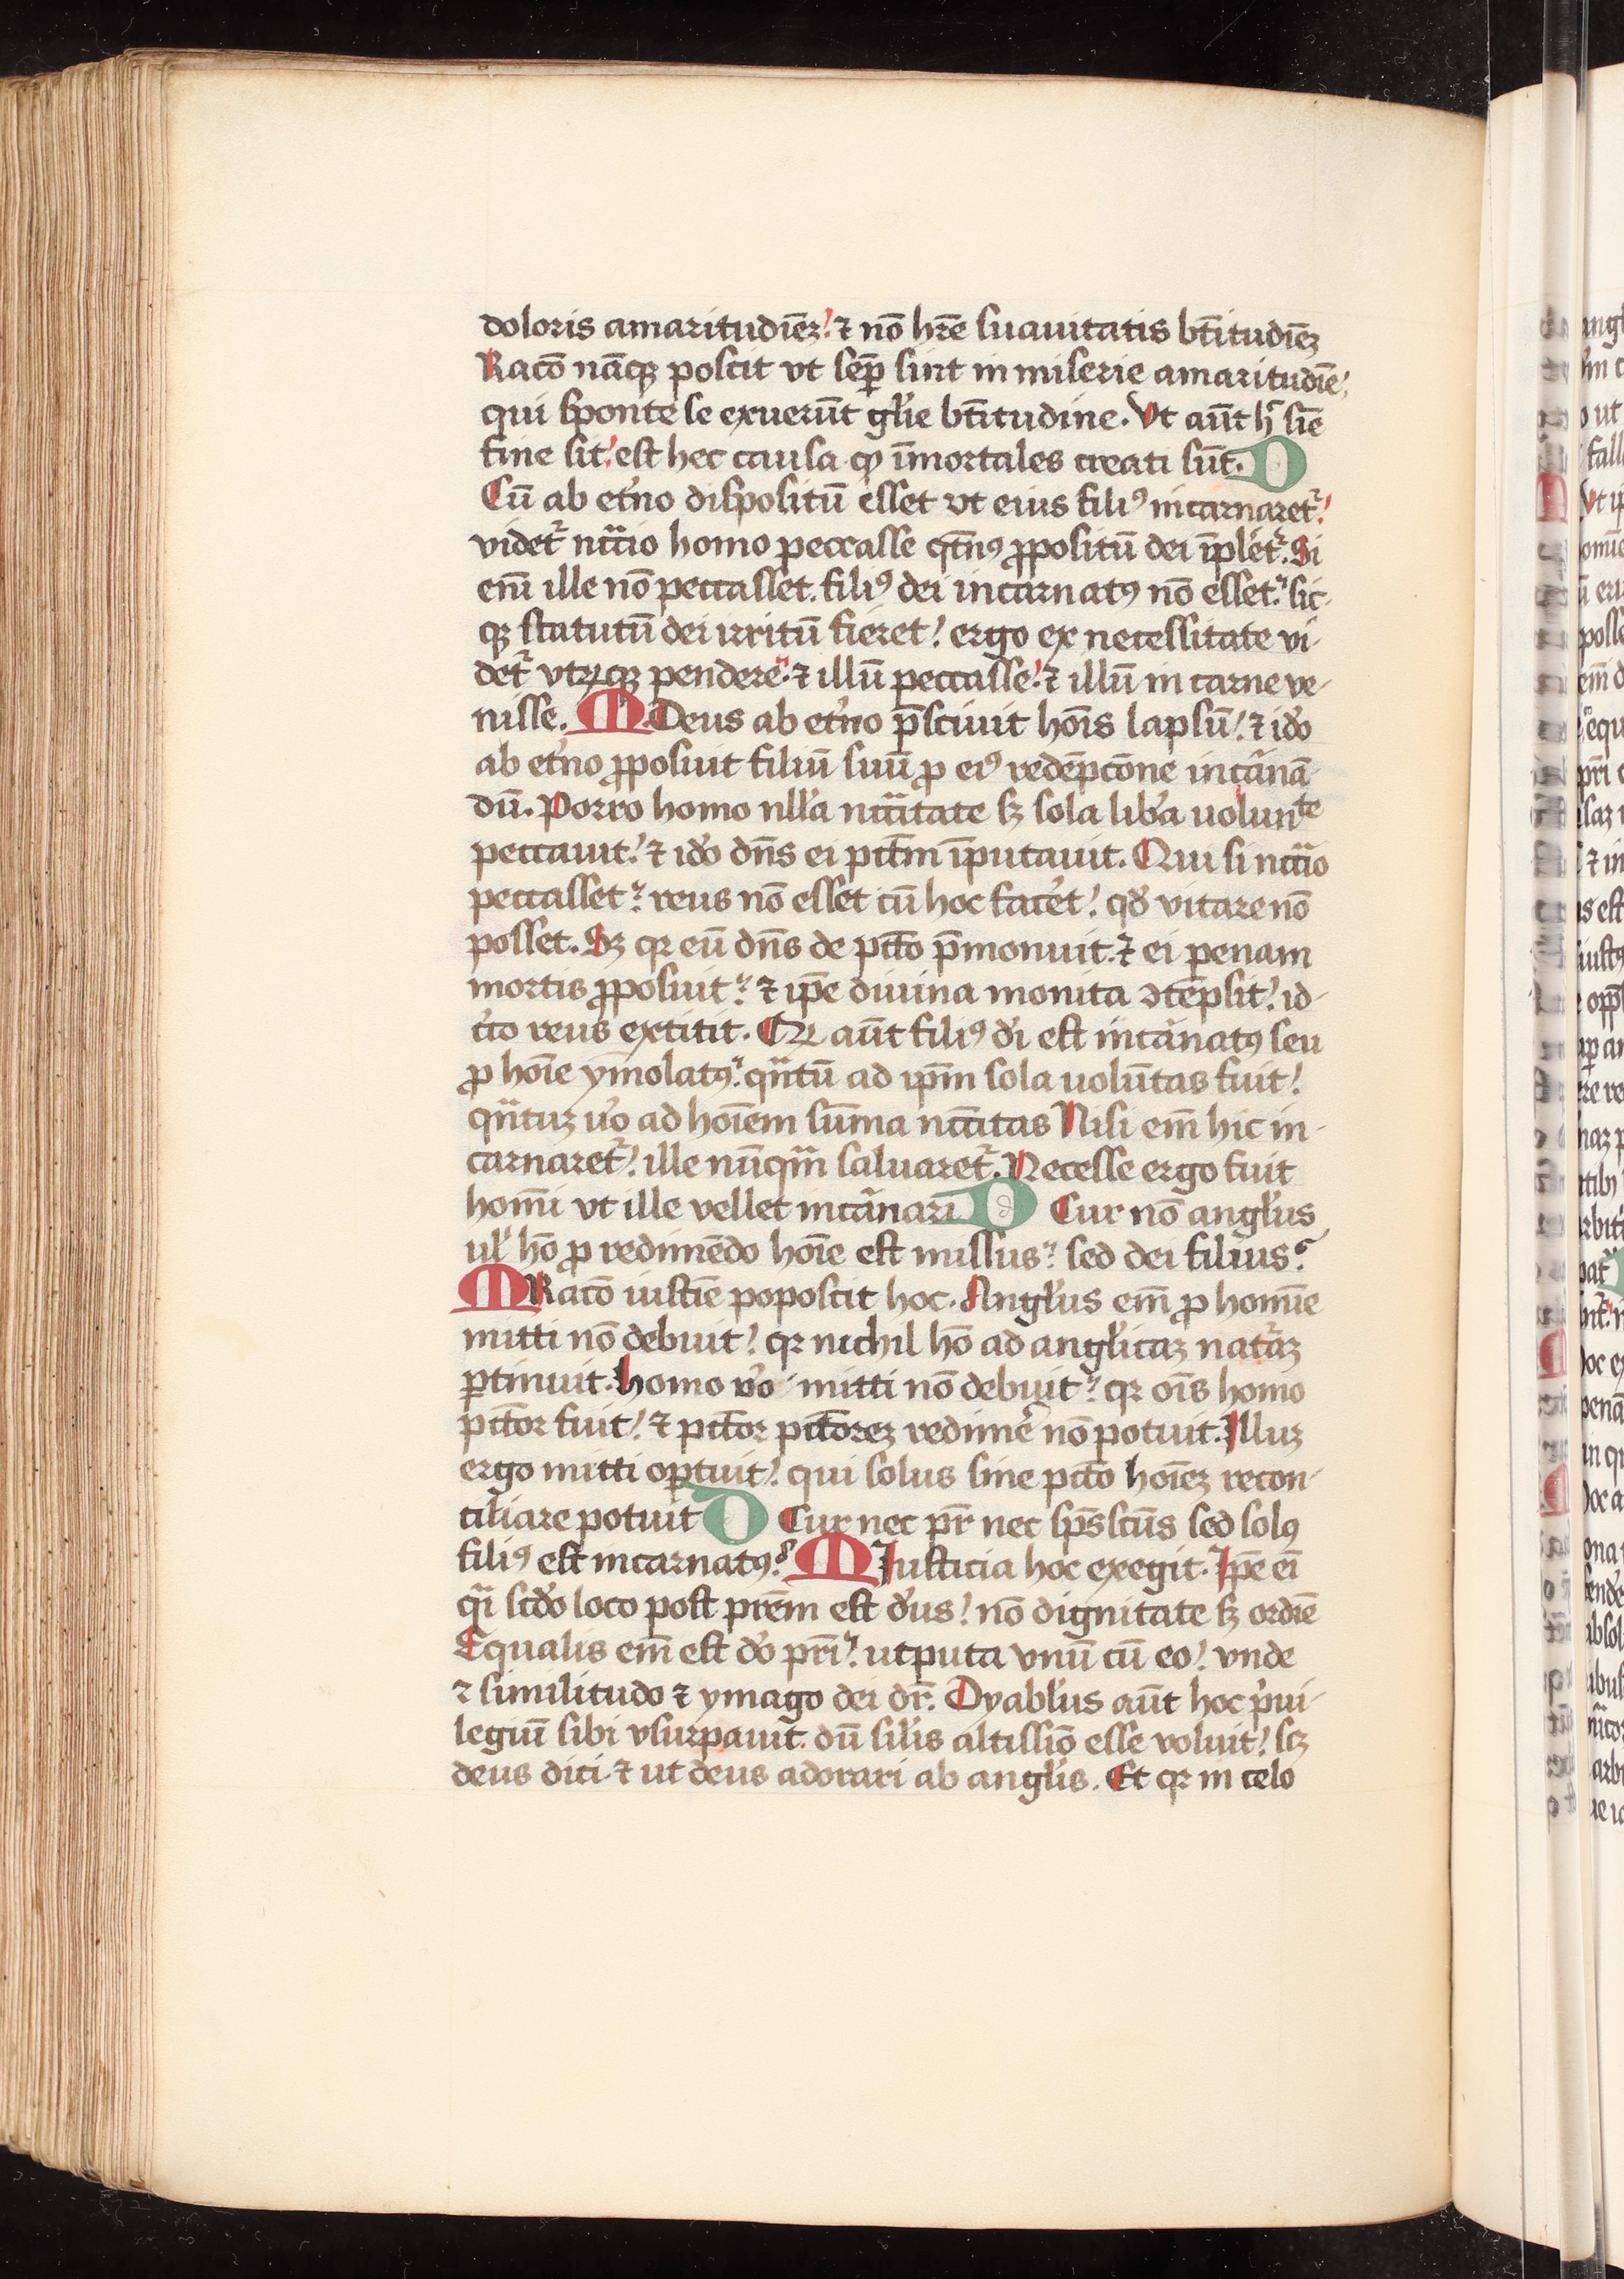 doloris amaritudiēꝫ! ⁊ nō hr̄e suauitatis bt̄itudiēꝫ
Racō nāqꝫ poscit vt semꝑ sint in miserie amaritudīe,
qui sponte se exuerūt gl̓ie bt̄itudine. Vt aūt h̓ sīe
fine sit! est hec causa ꝙ īmortales creati sūt. D
Cū ab et̓no dispositū esset vt eius filiꝰ incarnaret᷑!
videt᷑ nc̄c̄io homo peccasse qt̄nꝰ ꝓpositū dei īplēt᷑. Si
enī ille nō peccasset. filiꝰ dei incarnatꝰ nō esset. sic-
qꝫ statutū dei irritū fieret! ergo ex necessitate vi-
det᷑ vtꝝqꝫ pendere. ⁊ illū peccasse! ⁊ illū in carne ve-
nisse. M Deus ab et̓no p̄sciuit hoīs lapsū! ⁊ id̓o
ab et̓no ꝓposuit filiū suū ꝓ eiꝰ redēpcōne incar̄nā-
dū. Porro homo nll̓a nc̄c̄itate sꝫ sola lib̓a uolunᵗᵉ
peccauit! ⁊ id̓o dn̄s ei pctm̄ īputauit. Qui si nc̄c̄io
peccasset? reus nō esset cū hoc fac̓et! qd̓ vitare nō
posset. Sꝫ qꝛ eū dn̄s de pctō p̄monuit. ⁊ ei penam
mortis ꝓposuit? ⁊ ip̄e diuina monita ↄtēpsit! id-
c̓co reus extitit. Qꝛ aūt filiꝰ d̓i est incar̄natꝰ seu
ꝓ hoīe ymolatꝰ. qn̄tū ad ip̄m sola uolūtas fuit!
qn̄tuꝫ u̓o ad hoīem sūma nc̄c̄itas Nisi em̄ hic in-
carnaret᷑! ille nūqm̄ saluaret᷑. Necesse ergo fuit
homī vt ille vellet incar̄nari D Cur nō angl̓us
ul̓ hō ꝓ redimēdo hoīe est missus? sed dei filius?
M Racō iusticīe poposcit hoc. Angl̓us em̄ ꝓ homīe
mitti nō debuit! qꝛ nichil hō ad angl̓icaꝫ nat̄aꝫ
ꝑtinuit. Homo v̓o mitti nō debuit? qꝛ oīs homo
pctōr fuit! ⁊ pctōr pctōreꝫ redim̓e nō potuit. Illuꝫ
ergo mitti oꝑtuit! qui solus sine pctō hoīeꝫ recon-
ciliare potuit D Cur nec pr̄ nec sp̄s sc̄us sed solꝰ
filiꝰ est incarnatꝰ? M Iusticia hoc exegit. Ip̄e eī
q̄i sc̄do loco post prēm est d̓us! nō dignitate sꝫ ordīe
Equalis em̄ est d̓o prī! utputa vnū cū eo! vnde
⁊ similitudo ⁊ ymago dei dr̄. Dyabl̓us aūt hoc p̓ui-
legiū sibi vsurpauit. dū sil̓is altissīo esse voluit! sꝫ
deus dici ⁊ ut deus adorari ab angl̓is. Et qꝛ in celo